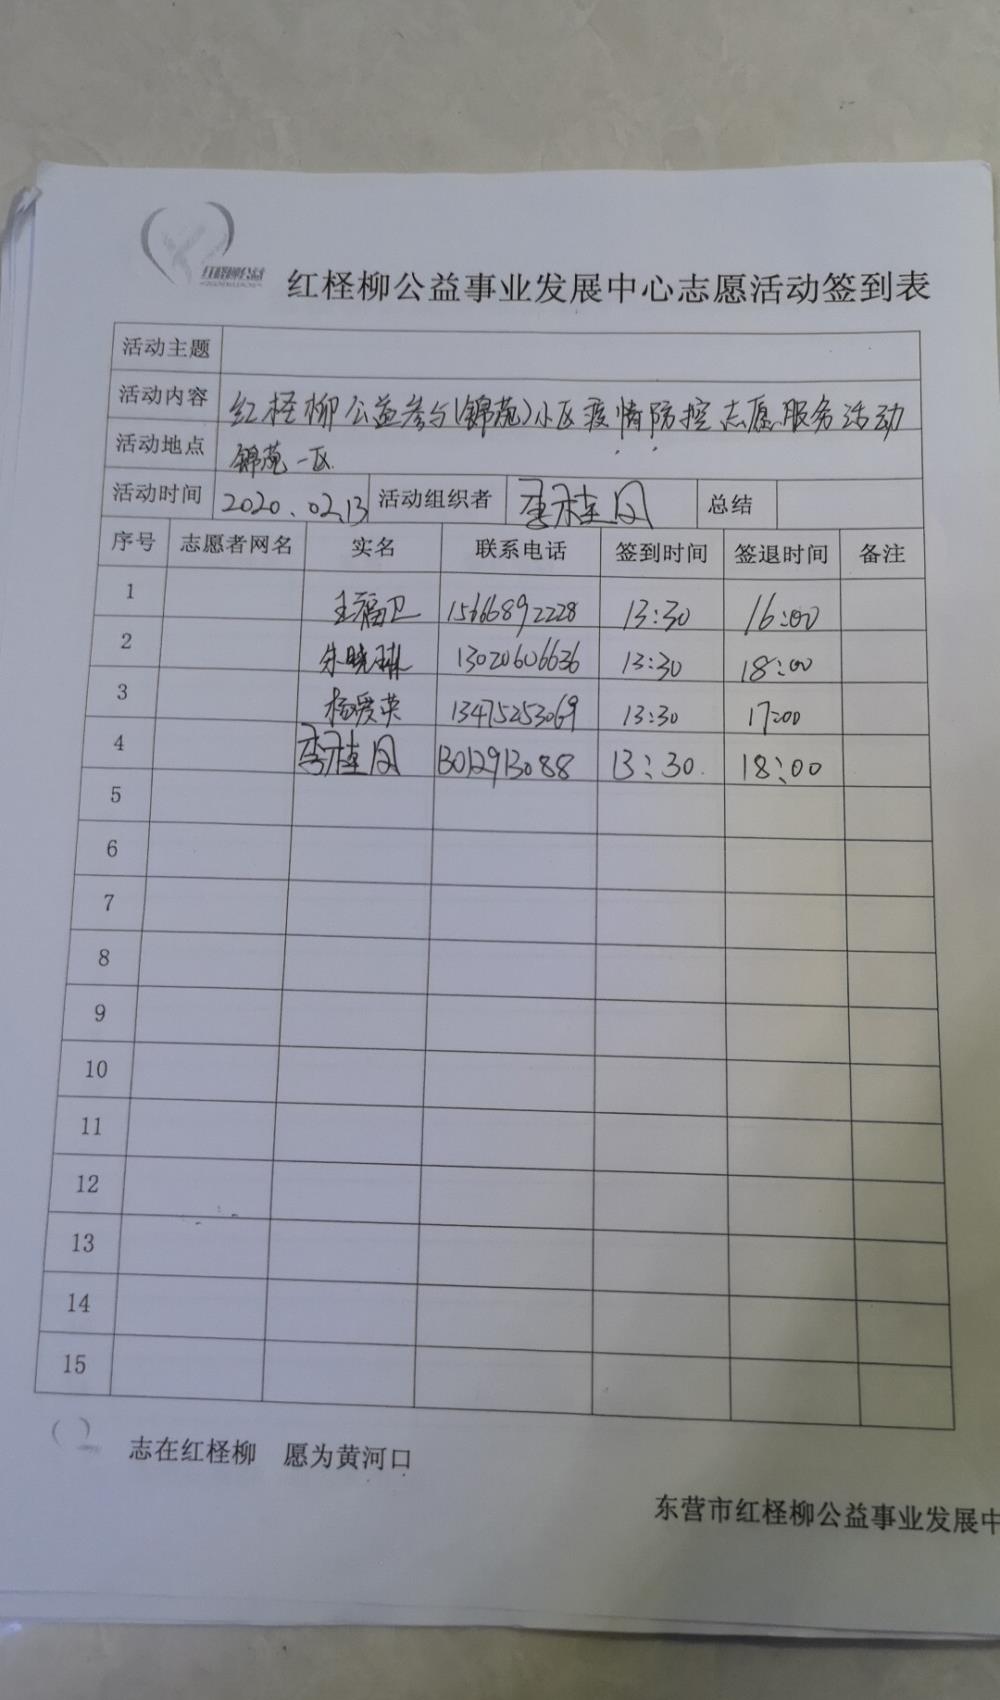 红柽柳公益
红柽柳公益事业发展中心志愿活动签到表
活动主题
活动内容 红柽柳公益参与(锦苑)小区疫情防控志愿服务活动
活动地点 锦苑一区
活动时间 2020.02.13 活动组织者 李桂凤 总结
序号 志愿者网名 实名 联系电话 签到时间 签退时间 备注
1 王福卫 15666892228 13:30 16:00
2 朱晓琳 13020606636 13:30 18:00
3 杨爱英 13475253069 13:30 17:00
4 李桂凤 13012913088 13:30 18:00
5
6
7
8
9
10
11
12
13
14
15
志在红柽柳 愿为黄河口
东营市红柽柳公益事业发展中